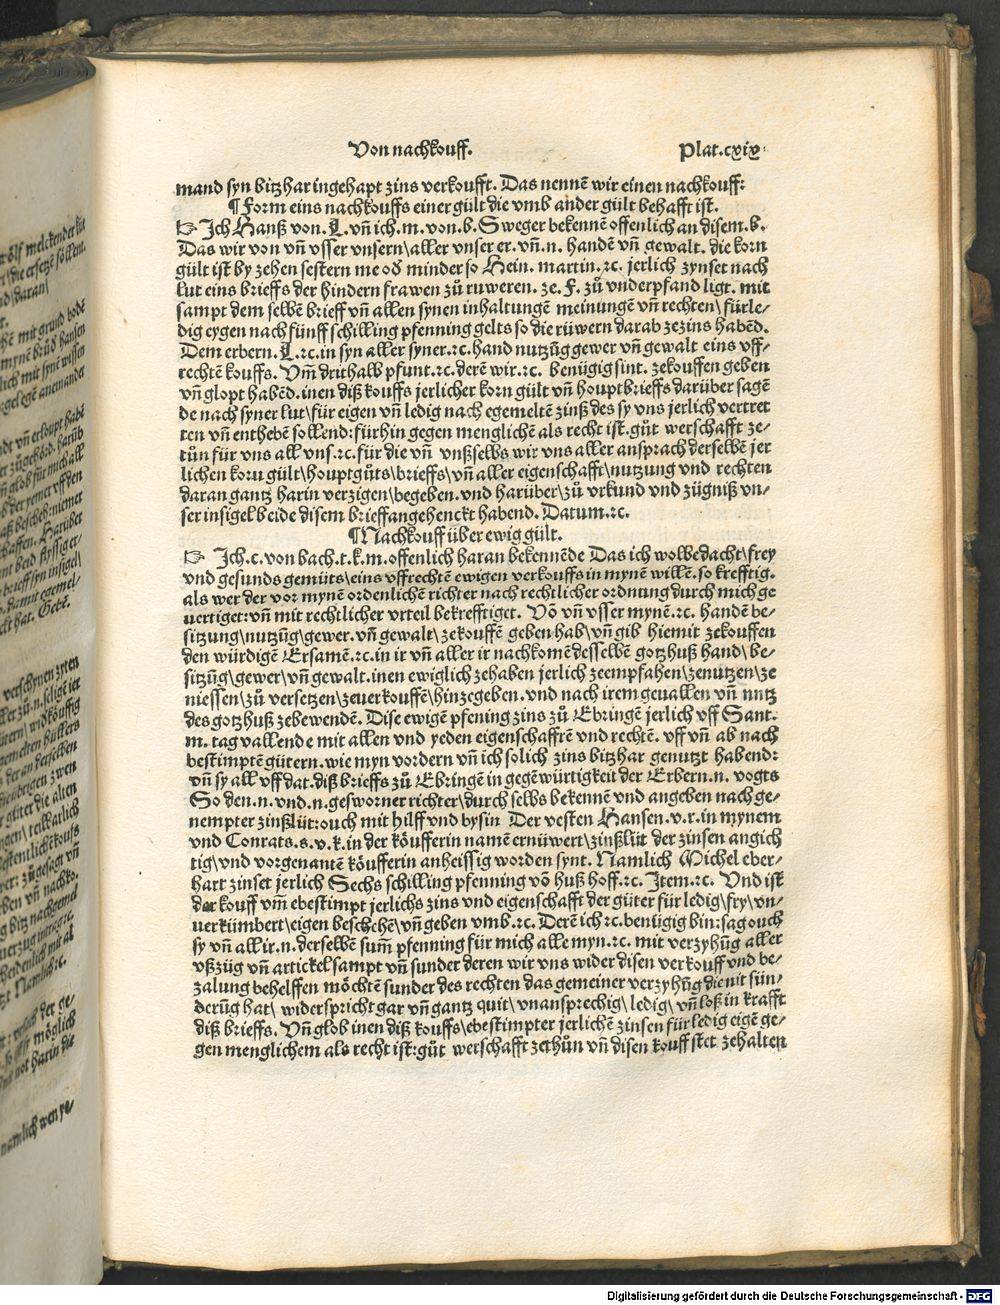 Von nachkouff. Plat.cxix.
mand syn bitzhar ingehapt zins verkoufft. Das nennē wir einen nachkouff:
¶ Form eins nachkouffs einer gült die vmb ander gült behafft ist.
☞ Ich Hanß von. L. vñ ich. m. von. b. Sweger bekennē offenlich an disem. b.
Das wir von vñ vsser vnsern\ aller vnser er. vñ. n. handē vñ gewalt. die korn
gült ist by zehen sestern me od minder so Hein. martin. ꝛc. jerlich zynset nach
lut eins brieffs der hindern frawen zů ruweren. ze. F. zů vnderpfand ligt. mit
sampt dem selbē brieff vñ allen synen inhaltungē meinungē vñ rechten\ fürle⸗
dig eygen nach fünff schilling pfenning gelts so die rüwern darab ze zins habēd.
Dem erbern. L. ꝛc. in syn aller syner. ꝛc. hand nutzūg gewer vñ gewalt eins vff⸗
rechtē kouffs. Vm̄ drithalb pfunt. ꝛc. derē wir. ꝛc. benügig sint. zekouffen geben
vñ glopt habēd. inen diß kouffs jerlicher korn gült vñ houptbrieffs darüber sagē
de nach syner lut\ für eigen vñ ledig nach egemeltē zinß des sy vns jerlich vertret
ten vñ enthebē sollend: fürhin gegen menglichē als recht ist. gůt werschafft ze⸗
tůn für vns all vns. ꝛc. für die vñ vnßselbs wir vns aller ansprach derselbē jer
lichen koru gült\ houptgůts\ brieffs\ vñ aller eigenschafft\ nutzung vnd rechten
daran gantz harin verzigen\ begeben. vnd harüber\ zů vrkund vnd zügniß vn⸗
ser insigel beide disem brieff angehenckt habend. Datum. ꝛc.
¶ Nachkouff über ewig gült.
☞ Ich. c. von bach. t. k. m. offenlich har an bekennēde Das ich wolbedacht\ frey
vnd gesunds gemüts\ eins vffrechtē ewigen verkouffs in mynē willē. so krefftig.
als wer der vor mynē ordenlichē richter nach rechtlicher ordnung durch mich ge
uertiget: vñ mit rechtlicher vrteil bekrefftiget. Vō vñ vsser mynē. ꝛc. handē be⸗
sitzung\ nutzūg\ gewer. vñ gewalt\ zekouffē geben hab\ vñ gib hiemit zekouffen
den würdigē Ersamē. ꝛc. in ir vñ aller ir nachkomē desselbē gotzhuß hand\ be⸗
sitzūg\ gewer\ vñ gewalt. inen ewiglich zehaben jerlich zeempfahen\ zenutzen\ ze
niessen\ zů versetzen\ zeuerkouffē\ hinzegeben. vnd nach irem geuallen vñ nutz
des gotzhuß zebewendē. Dise ewigē pfening zins zů Ebringē jerlich vff Sant.
m. tag vallende mit allen vnd yeden eigenschaffrē vnd rechtē. vff vñ ab nach
bestimptē gütern. wie myn vordern vñ ich solich zins bitzhar genutzt habend:
vñ sy all vff dat. diß brieffs zů Ebringē in gegēwürtigkeit der Erbern. n. vogts
So den. n. vnd. n. gesworner richter\ durch selbs bekennē vnd angeben nach ge⸗
nempter zinßlüt: ouch mit hilff vnd bysin Der vesten Hansen. v. r. in mynem
vnd Conrats. s. v. k. in der köufferin namē ernüwert\ zinßlüt der zinsen angich
tig\ vnd vorgenantē köufferin anheissig worden synt. Namlich Michel eber⸗
hart zinset jerlich Sechs schilling pfenning vō huß hoff. ꝛc. Item. ꝛc. Vnd ist
der kouff vm̄ ebestimpt jerlichs zins vnd eigenschafft der güter für ledig\ fry\ vn⸗
uerkümbert\ eigen beschehē\ vñ geben vmb. ꝛc. Derē ich ꝛc. benügig bin: sag ouch
sy vñ all ir. n. derselbē sum̄ pfenning für mich alle myn. ꝛc. mit verzyhūg aller
vßzüg vñ artickel sampt vñ sunder deren wir vns wider disen verkouff vnd be⸗
zalung behelffen möchtē sunder des rechten das gemeiner verzyhūg die nit sün⸗
derūg hat\ widerspricht gar vñ gantz quit\ vnansprechig\ ledig\ vñ loß in krafft
diß brieffs. Vñ glob inen diß kouffs\ ebestimpter jerlichē zinsen für ledig eigē ge⸗
gen menglichem als recht ist: gůt werschafft zethůn vñ disen kouff stet zehalten
Digitalisierung gefördert durch die Deutsche Forschungsgemeinschaft - DFG